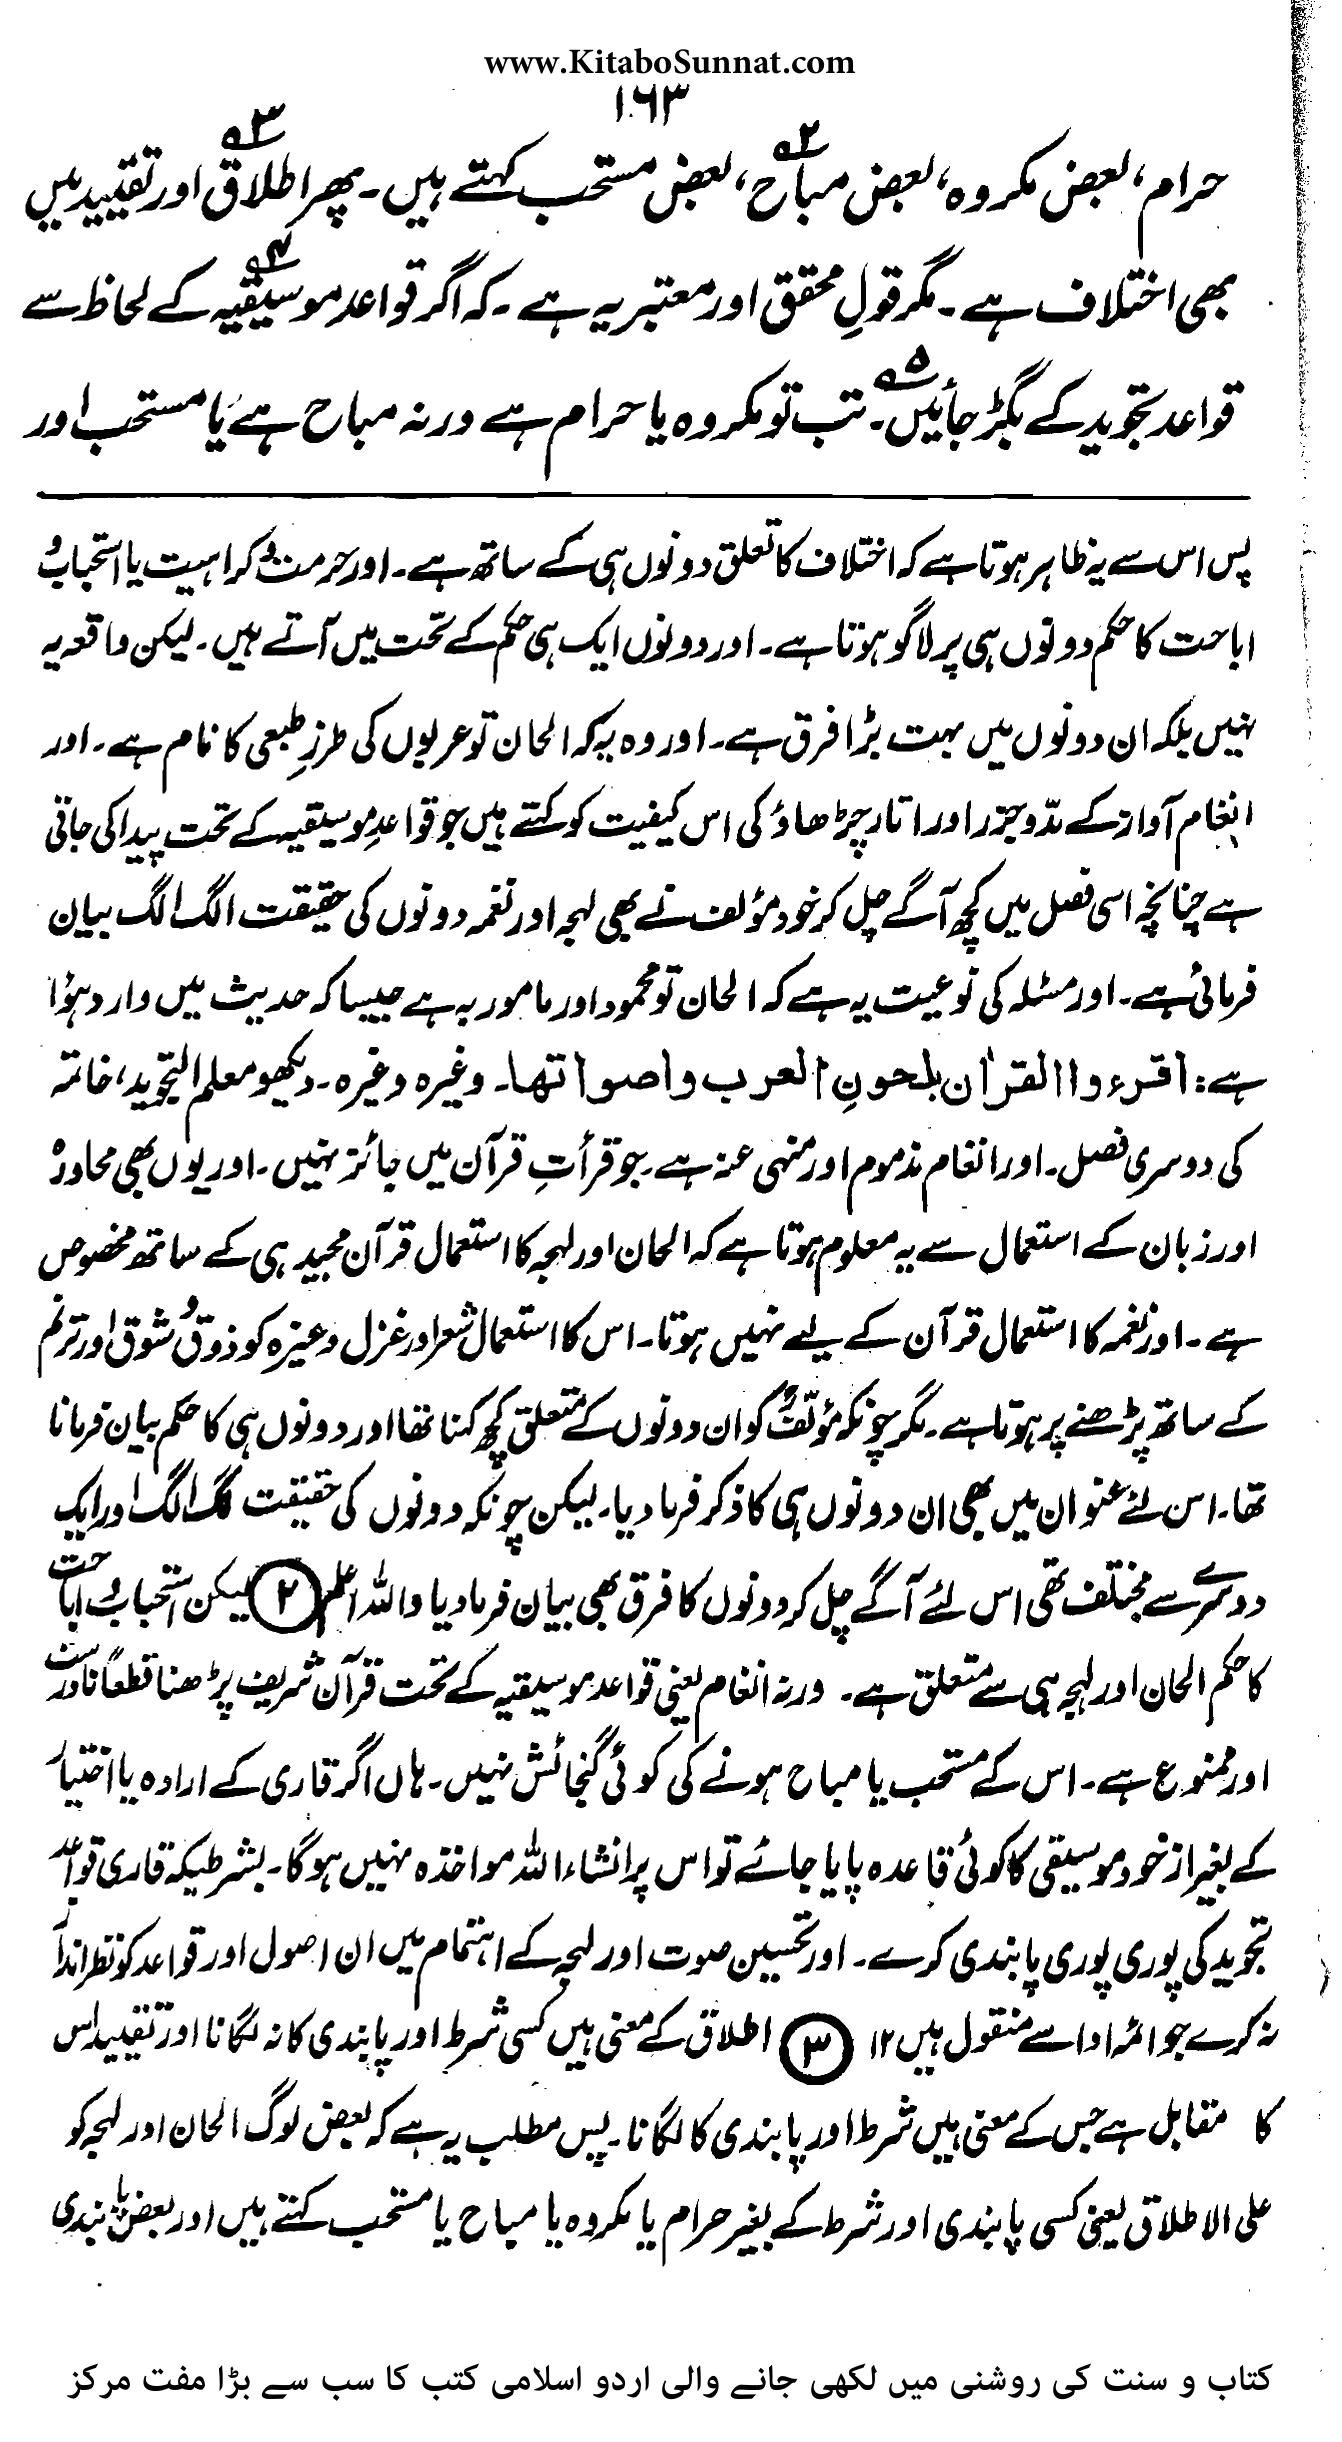 www.KitaboSunnat.com
۱۶۳
حرام، بعض مکروہ، بعض مباح۲، بعض مستحب کہتے ہیں۔ پھر اطلاق۳ اور تقیید میں
بھی اختلاف ہے۔ مگر قولِ محقق اور معتبر یہ ہے۔ کہ اگر قواعد موسیقیہ۴ کے لحاظ سے
قواعد تجوید کے بگڑ جائیں۵۔ تب تو مکروہ یا حرام ہے ورنہ مباح ہے یا مستحب اور
پس اس سے یہ ظاہر ہوتا ہے کہ اختلاف کا تعلق دونوں ہی کے ساتھ ہے۔ اور حرمت و کراہیت یا استحباب و
اباحت کا حکم دونوں ہی پر لاگو ہوتا ہے۔ اور دونوں ایک ہی حکم کے تحت میں آتے ہیں۔ لیکن واقعہ یہ
نہیں بلکہ ان دونوں میں بہت بڑا فرق ہے۔ اور وہ یہ کہ الحان تو عربوں کی طرزِ طبعی کا نام ہے۔ اور
انغام آواز کے مدّ و جزر اور اتار چڑھاؤ کی اس کیفیت کو کہتے ہیں جو قواعدِ موسیقیہ کے تحت پیدا کی جاتی
ہے چنانچہ اسی فصل میں کچھ آگے چل کر خود مؤلف نے بھی لہجہ اور نغمہ دونوں کی حقیقت الگ الگ بیان
فرمائی ہے۔ اور مسئلہ کی نوعیت یہ ہے کہ الحان تو محمود اور مامور بہ ہے جیسا کہ حدیث میں وارد ہؤا
ہے: اقرءوا القراٰن بلحونِ العرب واصواتها۔ وغیرہ وغیرہ۔ دیکھو معلم التجوید، خاتمہ
کی دوسری فصل۔ اور انغام مذموم اور منہی عنہ ہے۔ جو قرأتِ قرآن میں جائز نہیں۔ اور یوں بھی محاورہ
اور زبان کے استعمال سے یہ معلوم ہوتا ہے کہ الحان اور لہجہ کا استعمال قرآن مجید ہی کے ساتھ مخصوص
ہے۔ اور نغمہ کا استعمال قرآن کے لیے نہیں ہوتا۔ اس کا استعمال شعر اور غزل وغیرہ کو ذوق و شوق اور ترنم
کے ساتھ پڑھنے پر ہوتا ہے۔ مگر چونکہ مؤلفؒ کو ان دونوں کے متعلق کچھ کہنا تھا اور دونوں ہی کا حکم بیان فرمانا
تھا۔ اس لئے عنوان میں بھی ان دونوں ہی کا ذکر فرما دیا۔ لیکن چونکہ دونوں کی حقیقت الگ الگ اور ایک
دوسرے سے مختلف تھی اس لئے آگے چل کر دونوں کا فرق بھی بیان فرما دیا واللہ اعلم ۲ لیکن استحباب و اباحت
کا حکم الحان اور لہجہ ہی سے متعلق ہے۔ ورنہ انغام یعنی قواعد موسیقیہ کے تحت قرآن شریف پڑھنا قطعاً نادرست
اور ممنوع ہے۔ اس کے مستحب یا مباح ہونے کی کوئی گنجائش نہیں۔ ہاں اگر قاری کے ارادہ یا اختیار
کے بغیر از خود موسیقی کا کوئی قاعدہ پایا جائے تو اس پر انشاء اللہ مواخذہ نہیں ہوگا۔ بشرطیکہ قاری قواعد
تجوید کی پوری پوری پابندی کرے۔ اور تحسین صوت اور لہجہ کے اہتمام میں ان اصول اور قواعد کو نظر انداز
نہ کرے جو ائمہ ادا سے منقول ہیں ۱۲ ۳ اطلاق کے معنی ہیں کسی شرط اور پابندی کا نہ لگانا اور تقیید اس
کا مقابل ہے جس کے معنی ہیں شرط اور پابندی کا لگانا۔ پس مطلب یہ ہے کہ بعض لوگ الحان اور لہجہ کو
علی الاطلاق یعنی کسی پابندی اور شرط کے بغیر حرام یا مکروہ یا مباح یا مستحب کہتے ہیں اور بعض پابندی
کتاب و سنت کی روشنی میں لکھی جانے والی اردو اسلامی کتب کا سب سے بڑا مفت مرکز